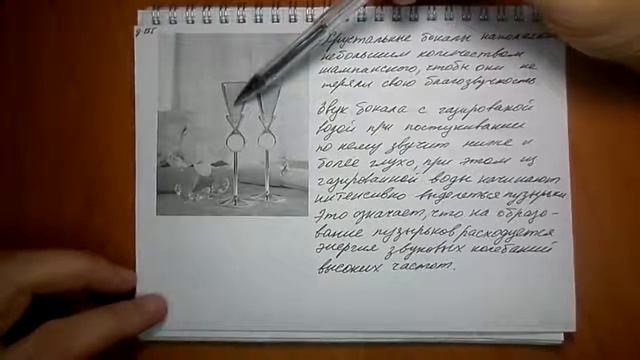 Хрустальные бокалы наполняют
небольшим количеством
шампанского, чтобы они не
теряли свою благозвучность
Звук бокала с газированой
водой при постукивании
по нему звучит ниже и
более глухо, при этом из
газированной воды начинают
интенсивно выделеться пузырьки.
Это означает, что на образо-
вание пузырьков расходуется
энергия звуковых колебаний
высоких частот.